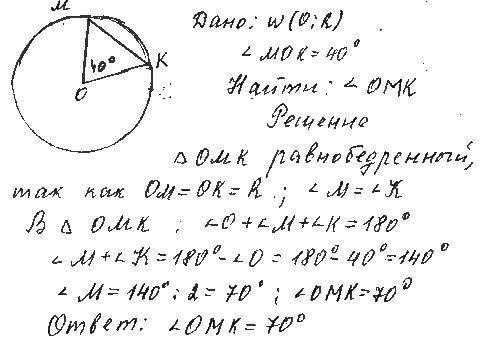 M
Дано: w(O;R)
∠MOK=40°
K
40°
O
Найти: ∠OMK
Решение
△OMK равнобедренный,
так как OM=OK=R; ∠M=∠K
В △ OMK: ∠O+∠M+∠K=180°
∠M+∠K=180°-∠O=180°-40°=140°
∠M=140°:2=70°; ∠OMK=70°
Ответ: ∠OMK=70°